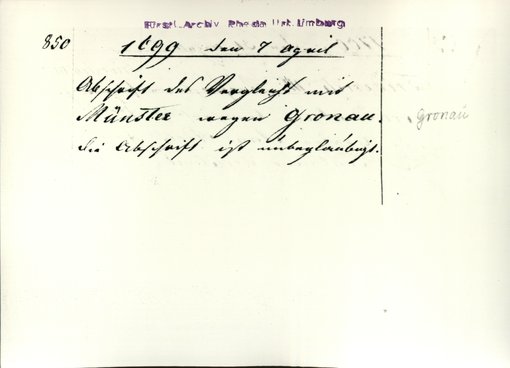 Fürstl. Archiv Rheda Urk. Limburg
850 1699 den 7 April
Abschrift des Vergleichs mit
Münster wegen Gronau. Gronau
die Abschrift ist unbeglaubigt.